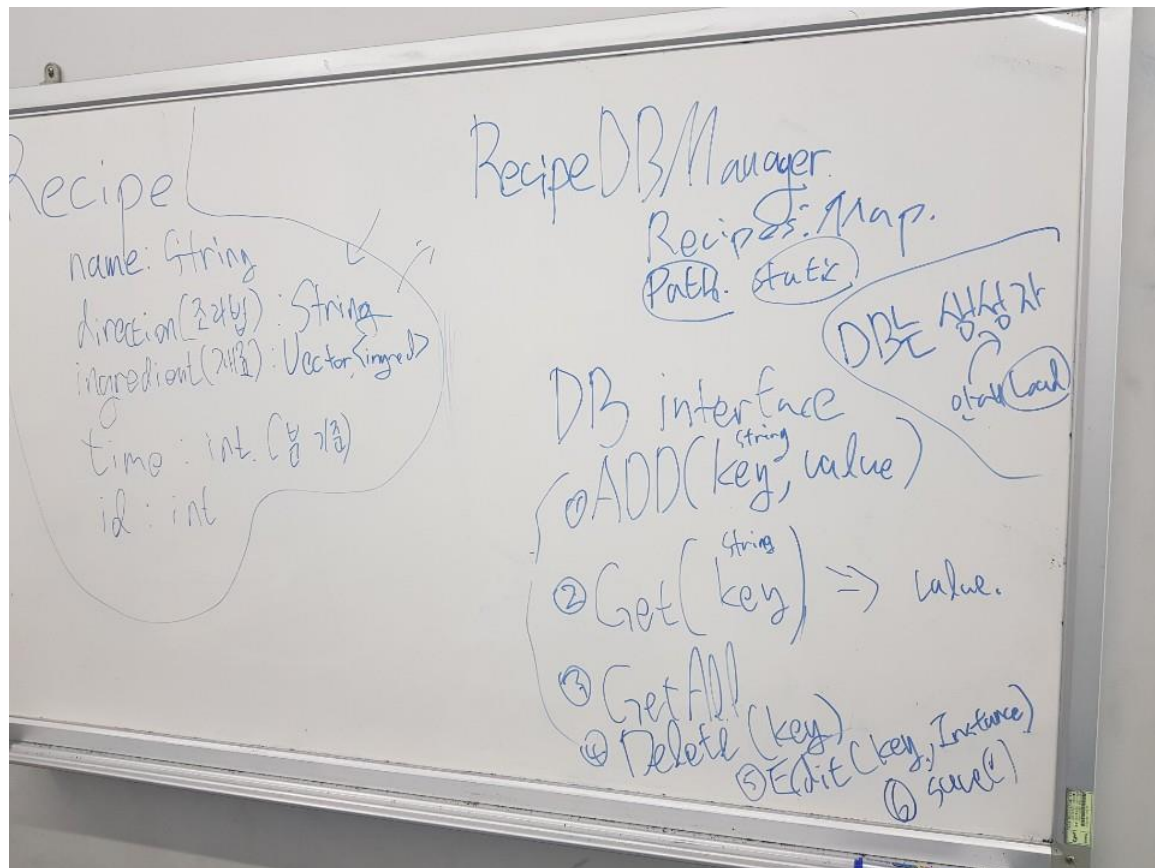 Recipe
name: String
direction(조리법) : String
ingredient(재료) : Vector<ingred>
time : int. (분 기준)
id : int
RecipeDBManager.
Recipes: Map.
Path. static
DB는 생성자
Load
DB interface
①ADD(key, value)
String
②Get(key) => value.
String
③GetAll
④Delete(key)
⑤Edit(key, Instance)
⑥save()